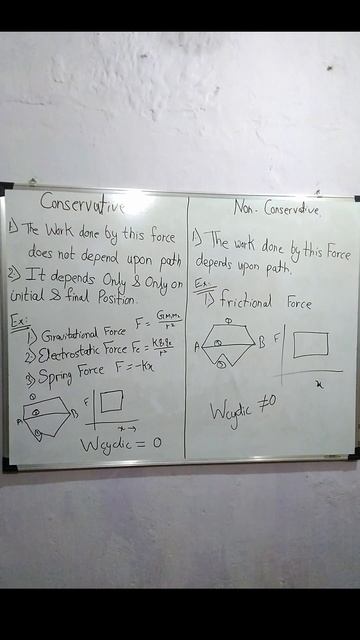 Conservative
1) The Work done by this force
does not depend upon path
2) It depends Only & Only on
initial & final Position.
Ex:
1) Gravitational Force F = Gm₁m₂/r²
2) Electrostatic Force Fc = Kq₁q₂/r²
3) Spring Force F = -Kx
① A ② B ③
F
x →
Wcyclic = 0
Non-Conservative
1) The work done by this Force
depends upon path.
Ex:
1) frictional Force
① A ② B ③
F
x
Wcyclic ≠ 0